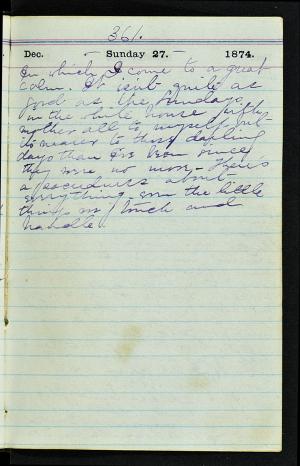 361.
Dec. Sunday 27. 1874.
In which I come to a great
calm. It isn't quite as
good as the Sundays
in the white house with
mother all to myself, but
its nearer to those darling
days than I've been since
they were no more. There's
a about
everything even the little
things we touch and
handle.